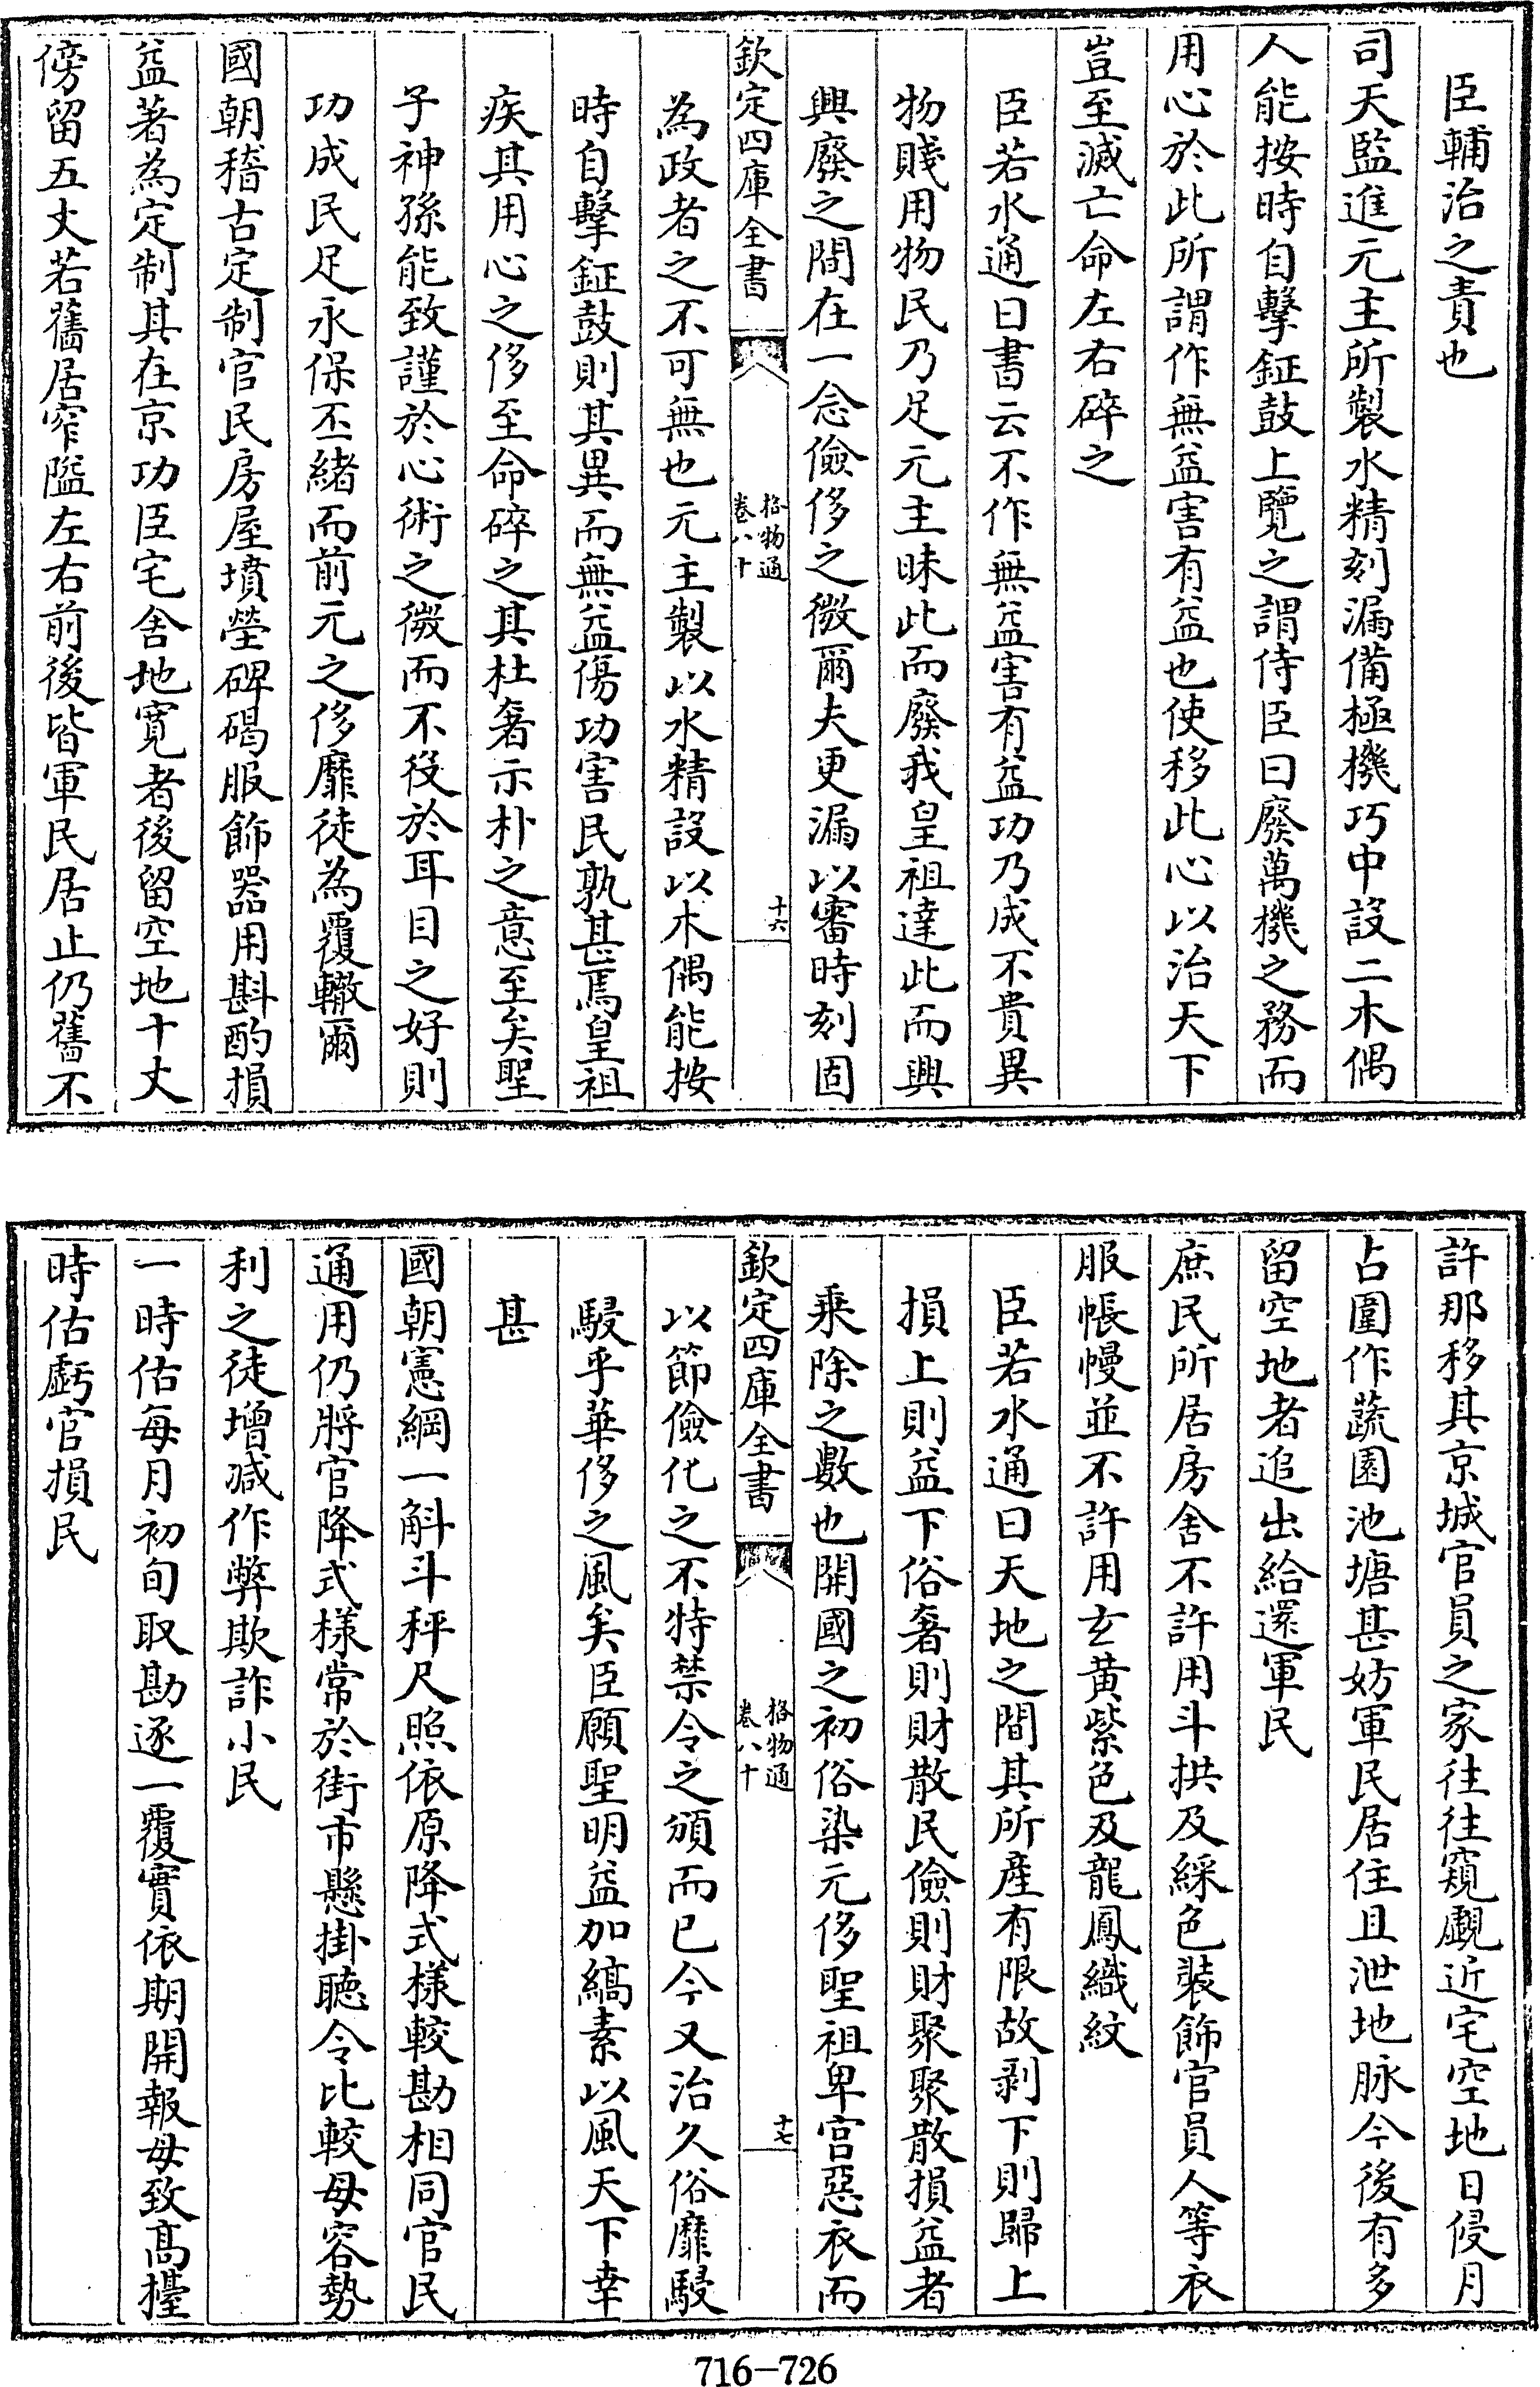 臣輔治之責也
司天監進元主所製水精刻漏備極機巧中設二木偶
人能按時自擊鉦鼓上覽之謂侍臣曰廢萬機之務而
用心於此所謂作無益害有益也使移此心以治天下
豈至滅亡命左右碎之
臣若水通曰書云不作無益害有益功乃成不貴異
物賤用物民乃足元主昧此而廢我皇祖達此而興
興廢之間在一念儉侈之微爾夫更漏以審時刻固
欽定四庫全書
格物通
卷八十
十六
為政者之不可無也元主製以水精設以木偶能按
時自擊鉦鼓則其異而無益傷功害民孰甚焉皇祖
疾其用心之侈至命碎之其杜奢示朴之意至矣聖
子神孫能致謹於心術之微而不役於耳目之好則
功成民足永保丕緒而前元之侈靡徒為覆轍爾
國朝稽古定制官民房屋墳塋碑碣服飾器用斟酌損
益著為定制其在京功臣宅舍地寬者後留空地十丈
傍留五丈若舊居窄隘左右前後皆軍民居止仍舊不
許那移其京城官員之家往往窺覷近宅空地日侵月
占圍作蔬園池塘甚妨軍民居住且泄地脉今後有多
留空地者追出給還軍民
庶民所居房舍不許用斗拱及綵色裝飾官員人等衣
服帳幔並不許用玄黄紫色及龍鳳織紋
臣若水通曰天地之間其所産有限故剥下則歸上
損上則益下俗奢則財散民儉則財聚聚散損益者
乘除之數也開國之初俗染元侈聖祖卑宫惡衣而
欽定四庫全書
格物通
卷八十
十七
以節儉化之不特禁令之頒而已今又治久俗靡駸
駸乎華侈之風矣臣願聖明益加縞素以風天下幸
甚
國朝憲綱一斛斗秤尺照依原降式樣較勘相同官民
通用仍將官降式樣常於街市懸掛聽令比較毋容勢
利之徒增減作弊欺詐小民
一時估每月初旬取勘逐一覆實依期開報毋致高擡
時估虧官損民
716-726